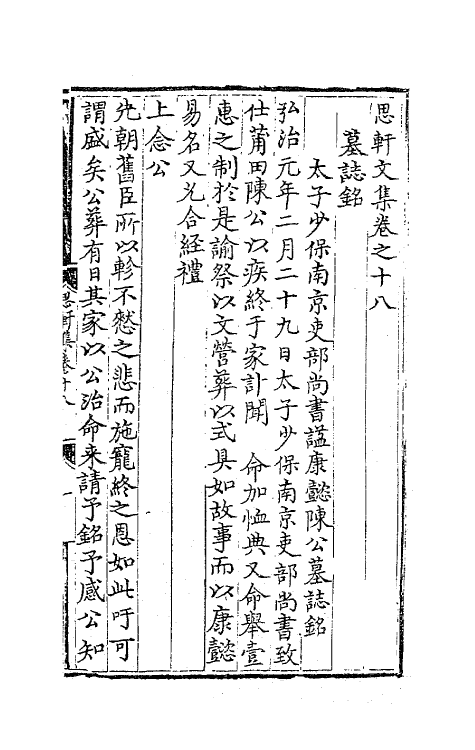 思軒文集卷之十八
墓誌銘
太子少保南京吏部尚書諡康懿陳公墓誌銘
弘治元年二月二十九日太子少保南京吏部尚書致
仕莆田陳公以疾終于家訃聞 命加恤典又命舉壹
惠之制於是諭祭以文營葬以式具如故事而以康懿
易名又允合経禮
上念公
先朝舊臣所以軫不憖之悲而施寵終之恩如此吁可
謂盛矣公葬有日其家以公治命来請予銘予感公知
思軒集卷十八 一